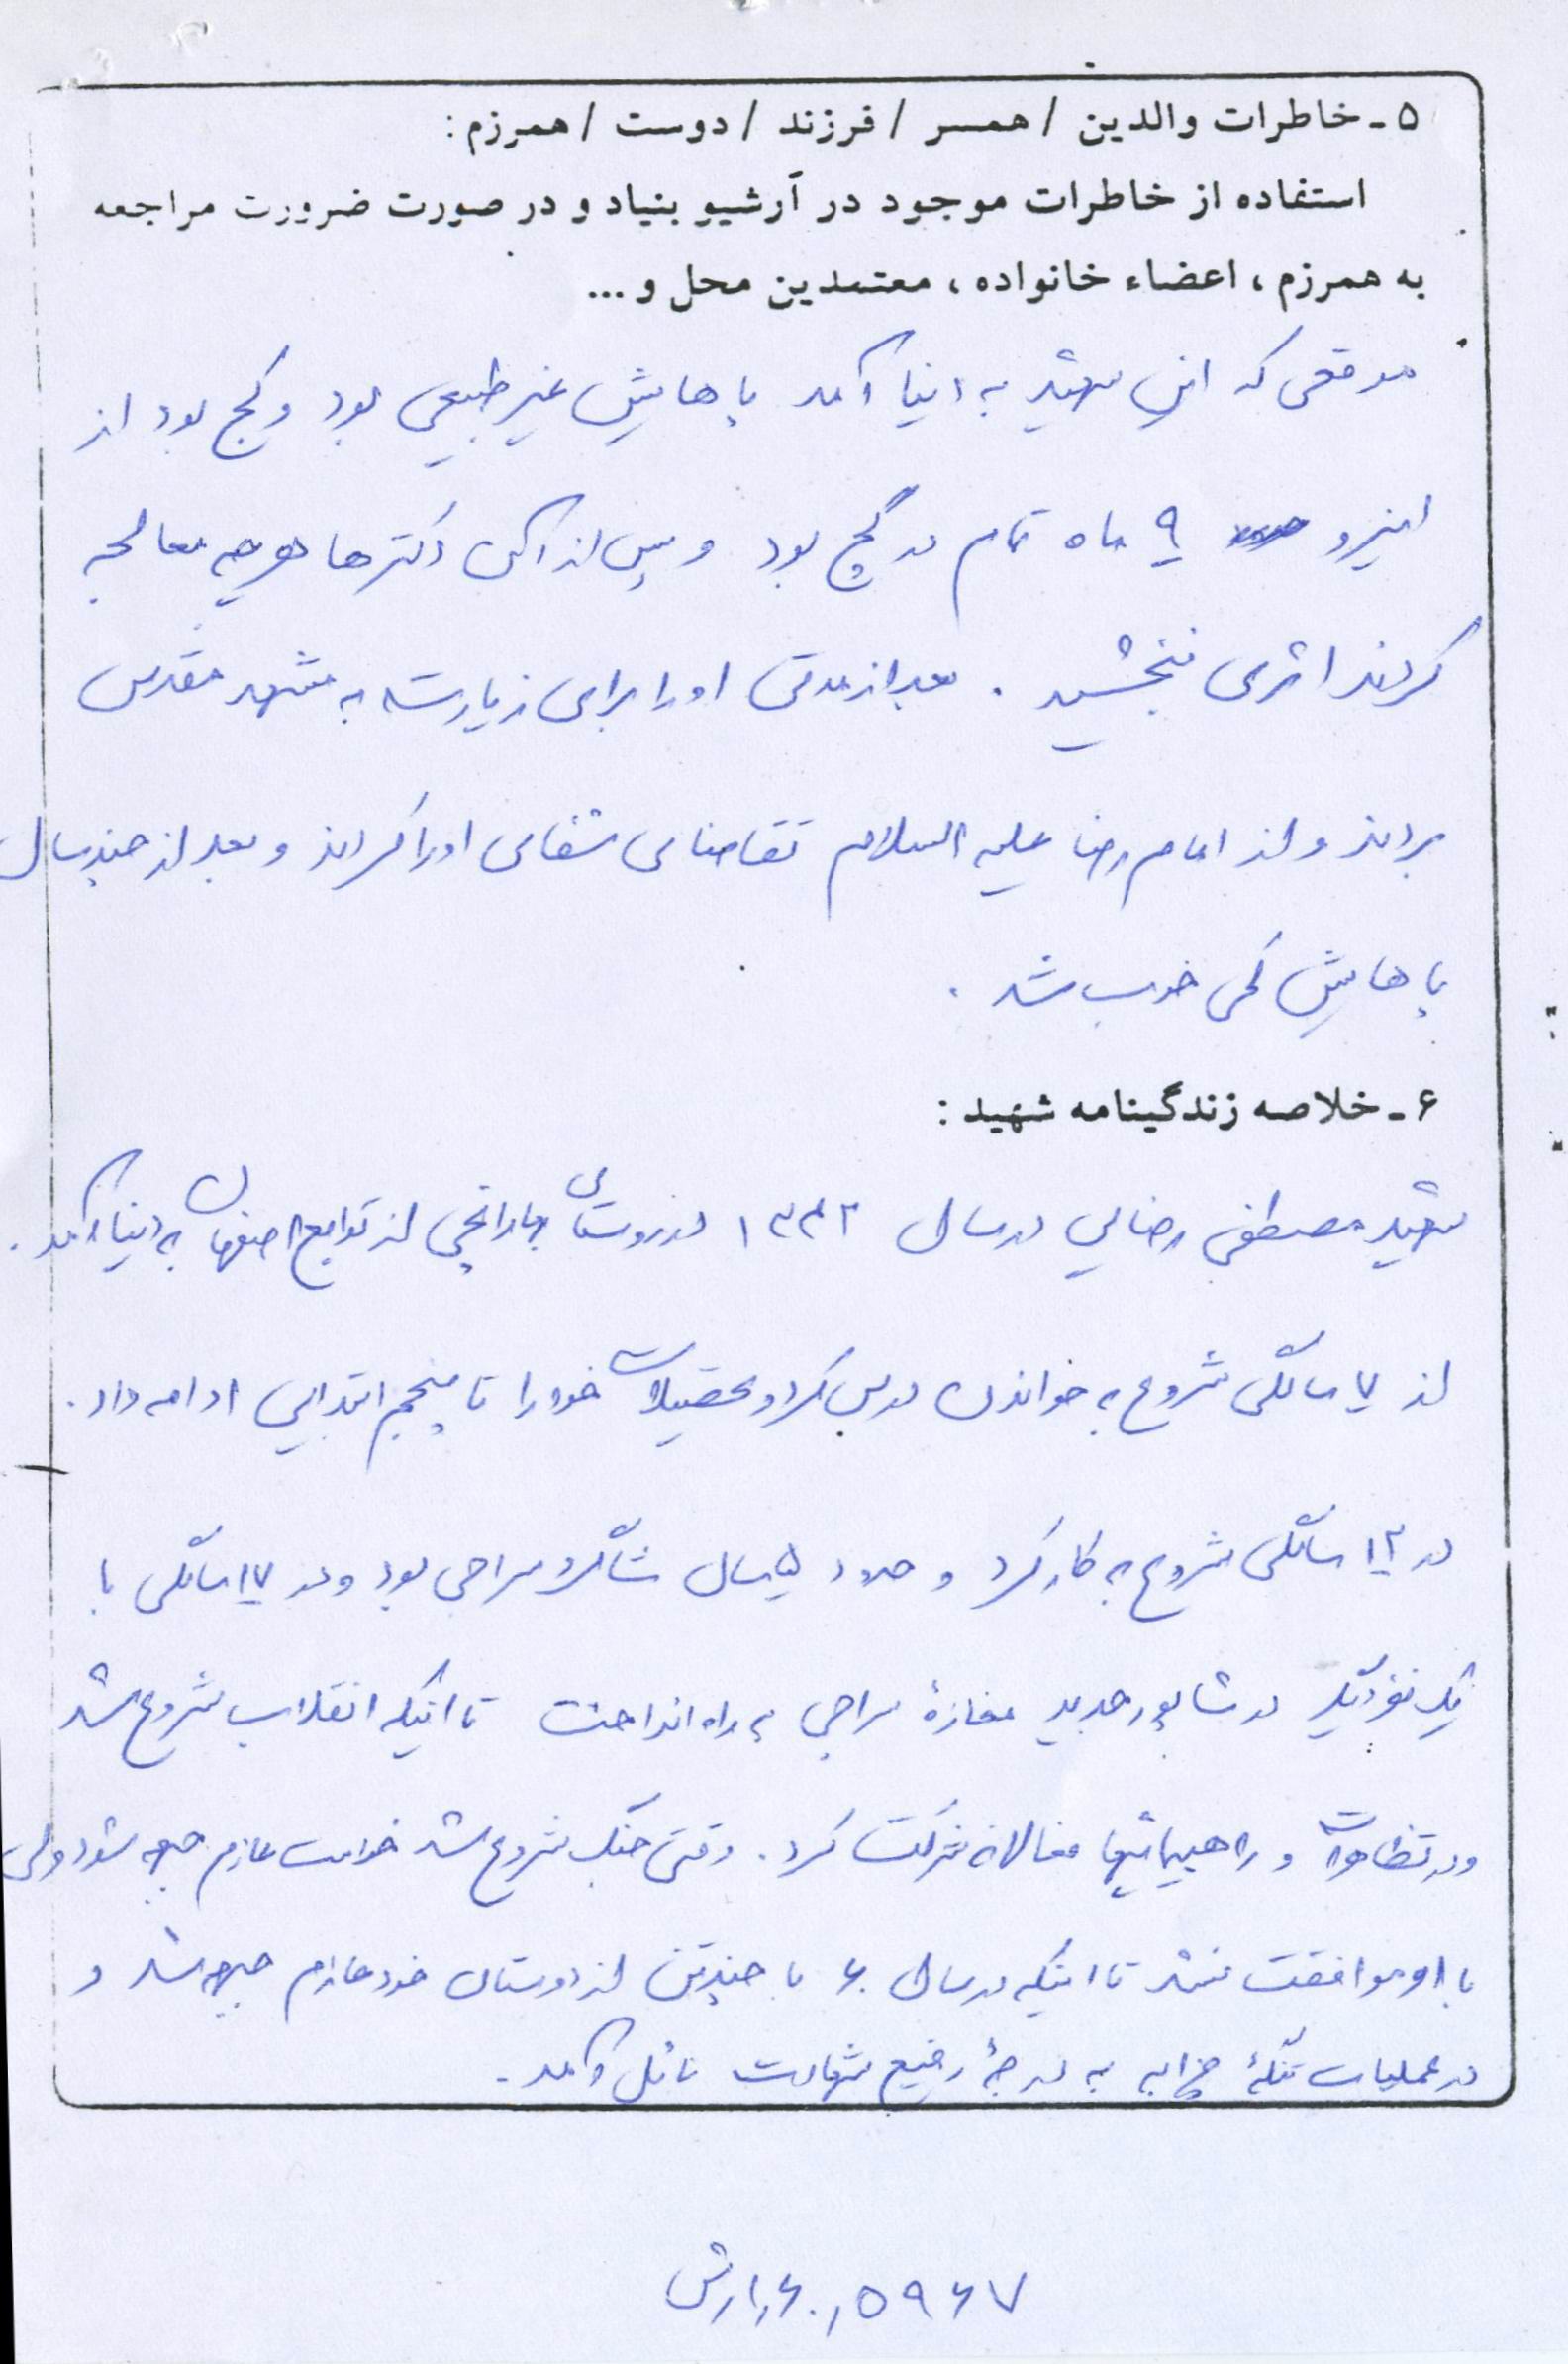 ۵ - خاطرات والدین / همسر / فرزند / دوست / همرزم :
استفاده از خاطرات موجود در آرشیو بنیاد و در صورت ضرورت مراجعه
به همرزم ، اعضاء خانواده ، معتمدین محل و ...
موقعی که این شهید به دنیا آمد پاهایش غیر طبیعی بود و کج بود از
اینرو ۹ ماه تمام در گچ بود و پس از آن دکترها هرچه معالجه
کردند اثری نبخشید . بعد از مدتی او را برای زیارت به مشهد مقدس
بردند و از امام رضا علیه السلام تقاضای شفای او را کردند و بعد از چند سال
پاهایش کمی خوب شد .
۶ - خلاصه زندگینامه شهید :
شهید مصطفی رضایی در سال ۱۳۴۲ در روستای از توابع اصفهان به دنیا آمد .
از ۷ سالگی شروع به خواندن درس کرد و تحصیلات خود را تا پنجم ابتدایی ادامه داد .
در ۱۲ سالگی شروع به کار کرد و حدود ۵ سال شاگرد سراجی بود و در ۱۷ سالگی با
یک نفر دیگر در شاپور جدید مغازهٔ سراجی به راه انداخت تا اینکه انقلاب شروع شد
و در تظاهرات و راهپیمائیها فعالانه شرکت کرد . وقتی جنگ شروع شد خواست عازم جبهه شود ولی
با او موافقت نشد تا اینکه در سال ۶۰ با چند تن از دوستان خود عازم جبهه شد و
در عملیات تنگهٔ چزابه به درجهٔ رفیع شهادت نائل آمد .